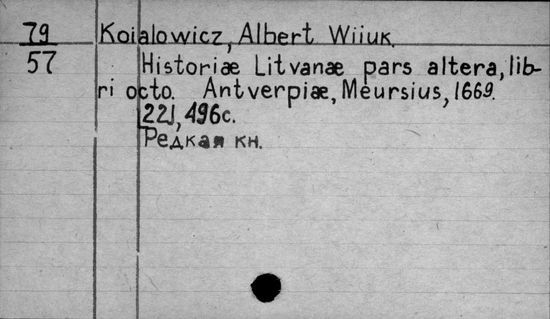 79 Koialowicz, Albert Wiiuk.
57 Historiæ Litvanæ pars altera, lib-
ri octo. Antverpiæ, Meursius, 1669.
[22], 496с.
Редкая кн.